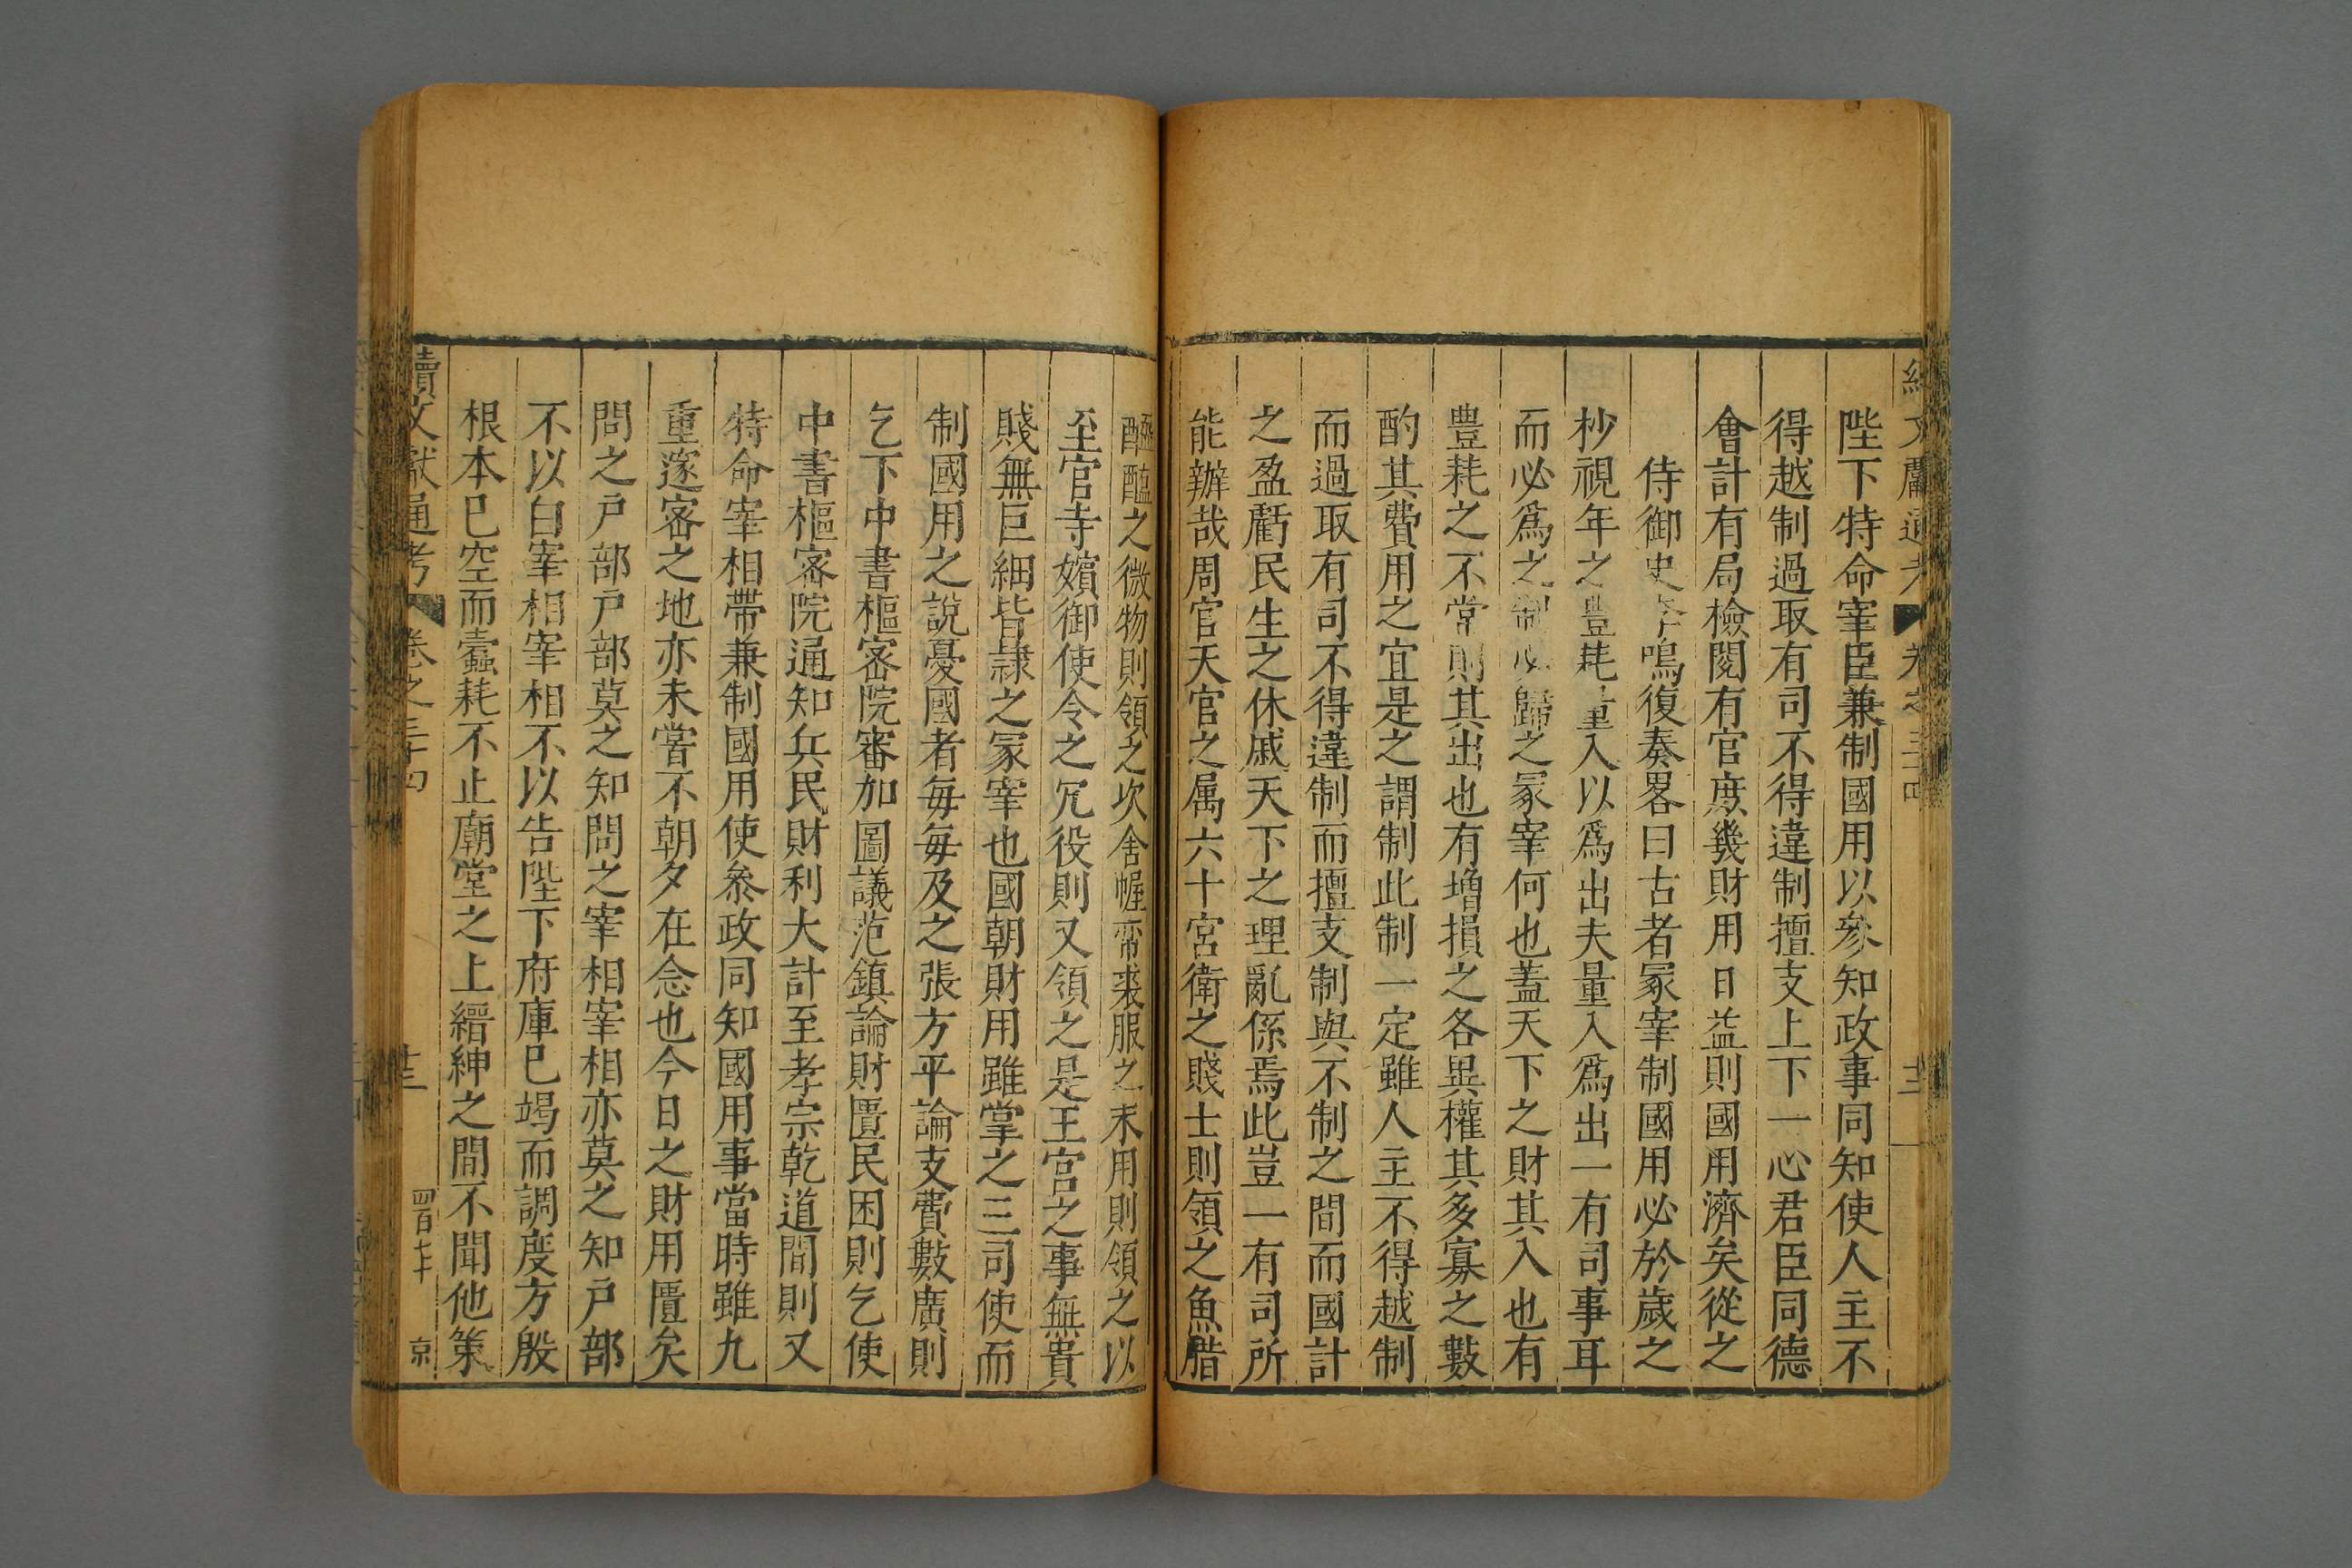 續文獻通考 卷之三十四 十二
陛下特命宰臣兼制國用以參知政事同知使人主不
得越制過取有司不得違制擅支上下一心君臣同德
會計有局檢閱有官庻幾財用日益則國用濟矣從之
侍御史李鳴復奏畧曰古者冢宰制國用必於歲之
杪視年之豐耗量入以爲出夫量入爲出一有司事耳
而必爲之制必歸之冢宰何也蓋天下之財其入也有
豊耗之不常則其出也有增損之各異權其多寡之數
酌其費用之宜是之謂制此制一定雖人主不得越制
而過取有司不得違制而擅支制與不制之間而國計
之盈虧民生之休戚天下之理亂係焉此豈一有司所
能辦哉周官天官之属六十宮衛之賤士則領之魚腊
醯醢之微物則領之次舍幄帟裘服之末用則領之以
至官寺嬪御使令之冗役則又領之是王宮之事無貴
賤無巨細皆隷之冢宰也國朝財用雖掌之三司使而
制國用之說憂國者每每及之張方平論支費數廣則
乞下中書樞宻院審加圖議范鎮論財匱民困則乞使
中書樞宻院通知兵民財利大計至孝宗乾道間則又
特命宰相帶兼制國用使叅政同知國用事當時雖九
重邃宻之地亦未嘗不朝夕在念也今日之財用匱矣
問之戸部戸部莫之知問之宰相宰相亦莫之知戸部
不以白宰相宰相不以告陛下府庫巳竭而調度方殷
根本巳空而蠹耗不止廟堂之上縉紳之間不聞他策
續文獻通考 卷之三十四 十三 京